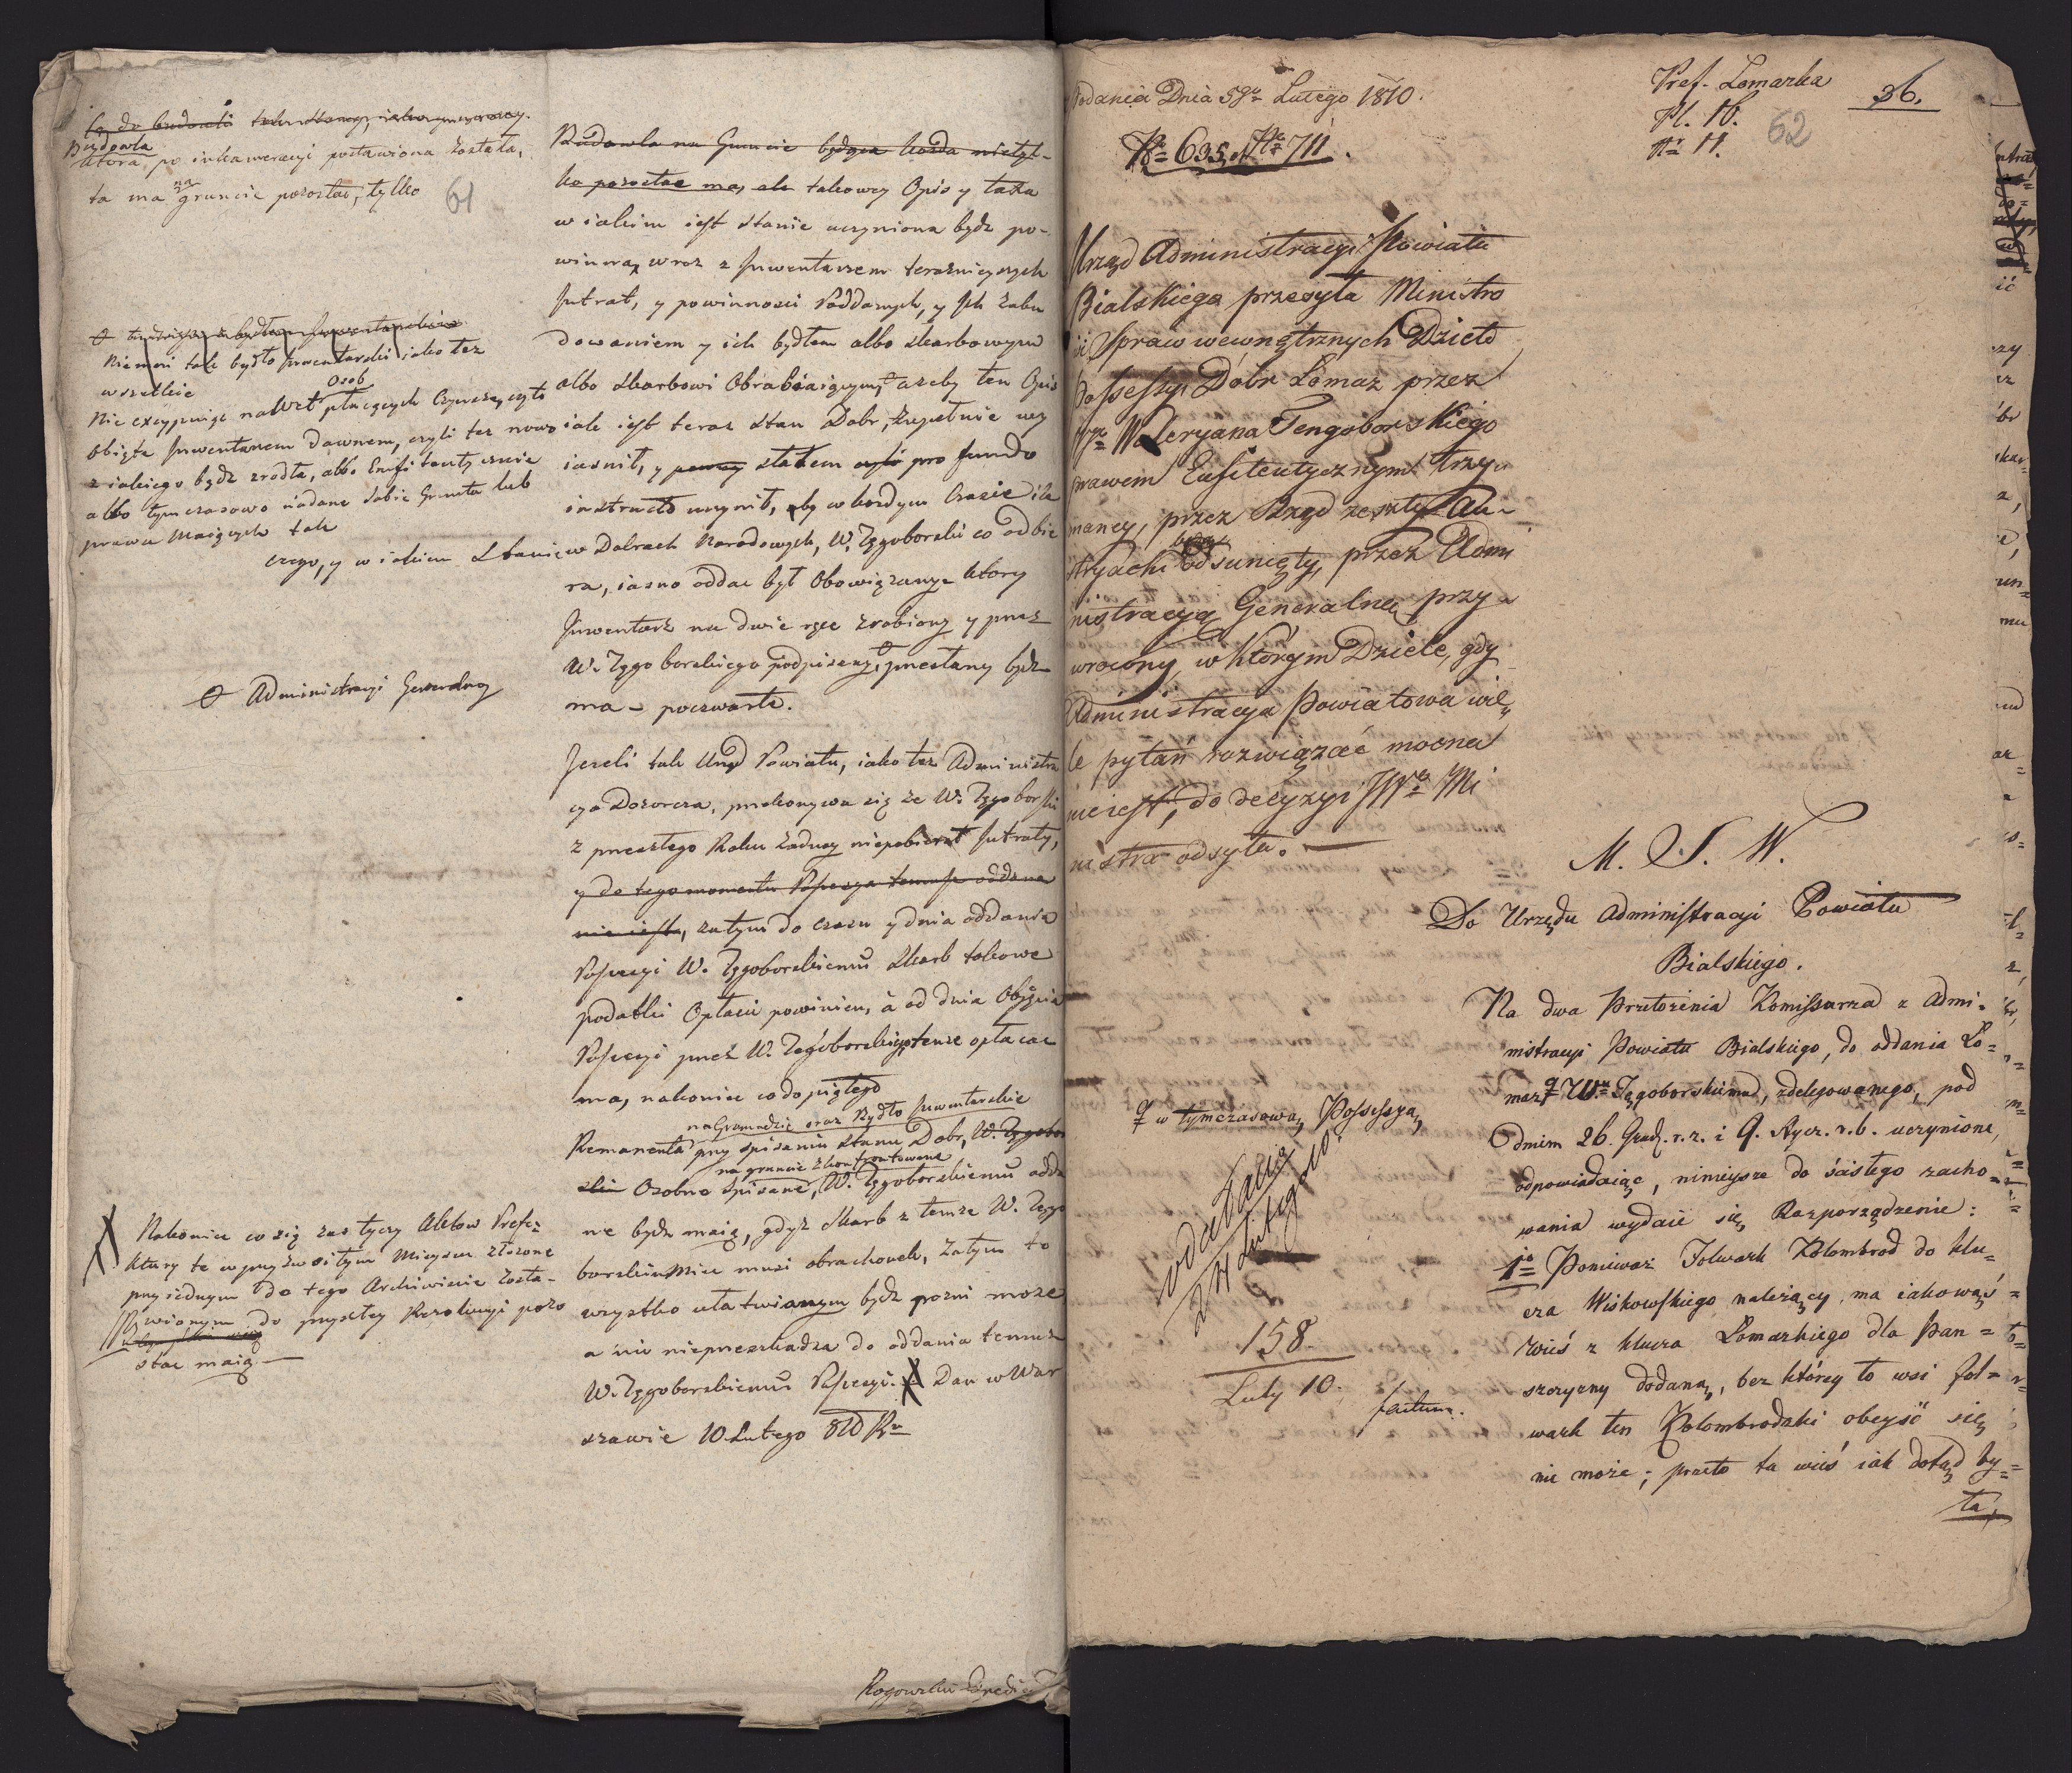 Budowla
która po inkameracyi postawiona została,
ta ma na gruncie pozostać, tylko
61
Niemniej tak bydło Inwentarski iako też
wszelkie
nie excypuiąc nawet Osob płacących Czynsze, czyto
obięte Inwentarzem dawnem, czyli też nowo
z iakiego bądź zrodła, albo Emfiteutycznie
albo tymczasowo nadane sobie Grunta lub
prawa maiących tak
czego, y w iakiem Stanie
Administracyi Generalney
Nakoniec co się zaś tyczy Aktow Prefe-
ktury te w przyzwoitym Mieyscu złożone
przysiężnym do tego Archiwiście zosta-
wionym do przyszłey Rezolucyi pozo
stać maią.
Budowla na Gruncie będąca każda nietyl-
ko pozostać ma, ale takowey Opis y taxa
w iakim iest stanie uczyniona bydź po-
winna, wraz z Inwentarzem teraznieyszych
Intrat, y powinnosci Poddanych, y Ich Zabu
dowaniem y ich bydłem albo skarbowym
albo Skarbowi Obrabiaiącym, azeby ten Opis
iak iest teraz stan Dobr, zupełnie wy
iasnił, y statem pro fundo
instructo uczynił, aby w kazdym Czasie ile
w Dobrach Narodowych, W. Tęgoborski co odbie
ra, iasno oddac był Obowiązany – ktory
Inwentarz na dwie ręce zrobiony y przez
W. Tęgoborskiego podpisany, przesłany bydz
ma – poczwarte.
Jezeli tak Urząd Powiatu, iako też Administra
cya Dozorcza, przekonywa się że W. Tęgoborski
z przeszłego Roku żadney niepobierał Intraty,
y do tego momentu Possessya temuż oddana
nie iest, zatym do czasu y dnia oddania
Possessyi W. Tęgoborskiemu Skarb takowe
podatki Opłacić powinien, á od dnia Obięcia
Possessyi przez W. Tęgoborskiego, tenże opłacac
ma, nakoniec co do piątego
na Gromadzie oraz Bydło Inwentarskie
Remanenta przy spisaniu stanu Dobr, W. Tęgobor
na gruncie skonfrontowane
skim Osobno spisane, W. Tęgoborskiemu odda
ne bydz maią, gdyż Skarb z temze W. Tęgo
borskim Mieć musi obrachonek, Zatym to
wszystko ułatwionym bydz pozni może
a nic nieprzeszkadza do oddania temuż
W. Tęgoborskiemu Possessyi. Dan w War
szawie 10 Lutego 810 Ru
Rogowski
Podania Dnia 5go Lutego 1810.
No 635, 711.
Pref. Lomazka
Pl. 16.
Nr 11.
62
36.
Urząd Administracyi Powiatu
Bialskiego przesyła Ministro
wi Spraw wewnętrznych Dzieło
Possessyi Dobr Lomaz przez
Wgo Waleryana Tengoborskiego
prawem Enfiteutycznym trzy-
maney, przez Rząd zeszły Au-
stryacki odsunięty, przez Admi
nistracyą Generalną przy-
wrocony, w którym Dziele, gdy
Administracya Powiatowa wie-
le pytań rozwiązać mocna
nie iest, do decyzyi JWgo Mi
nistra odsyła.
w tymczasową Possessyą
oddać
24 Lutego
158.
Luty 10.
factum.
M. S. W.
Do Urzędu Administracyi Powiatu
Bialskiego.
Na dwa Przełożenia Komissarza z Admi-
nistracyi Powiatu Bialskiego, do oddania Ło-
maz W. Tęgoborskiemu, zdelegowanego, pod
dniem 26. Grud. r. z. i 9. Stycz. r. b. uczynione,
odpowiadaiąc, ninieysze do ścisłego zacho-
wania wydaie się Rozporządzenie:
1o Ponieważ Folwark Kolombrod do klu-
cza Wiskowskiego należący, ma iakowąś
wieś z klucza Łomazkiego dla Pan=
szczyzny dodaną, bez którey to wsi fol=
wark ten Kolombrodzki obeyść się
nie może; przeto ta wieś iak dotąd by=
ła,